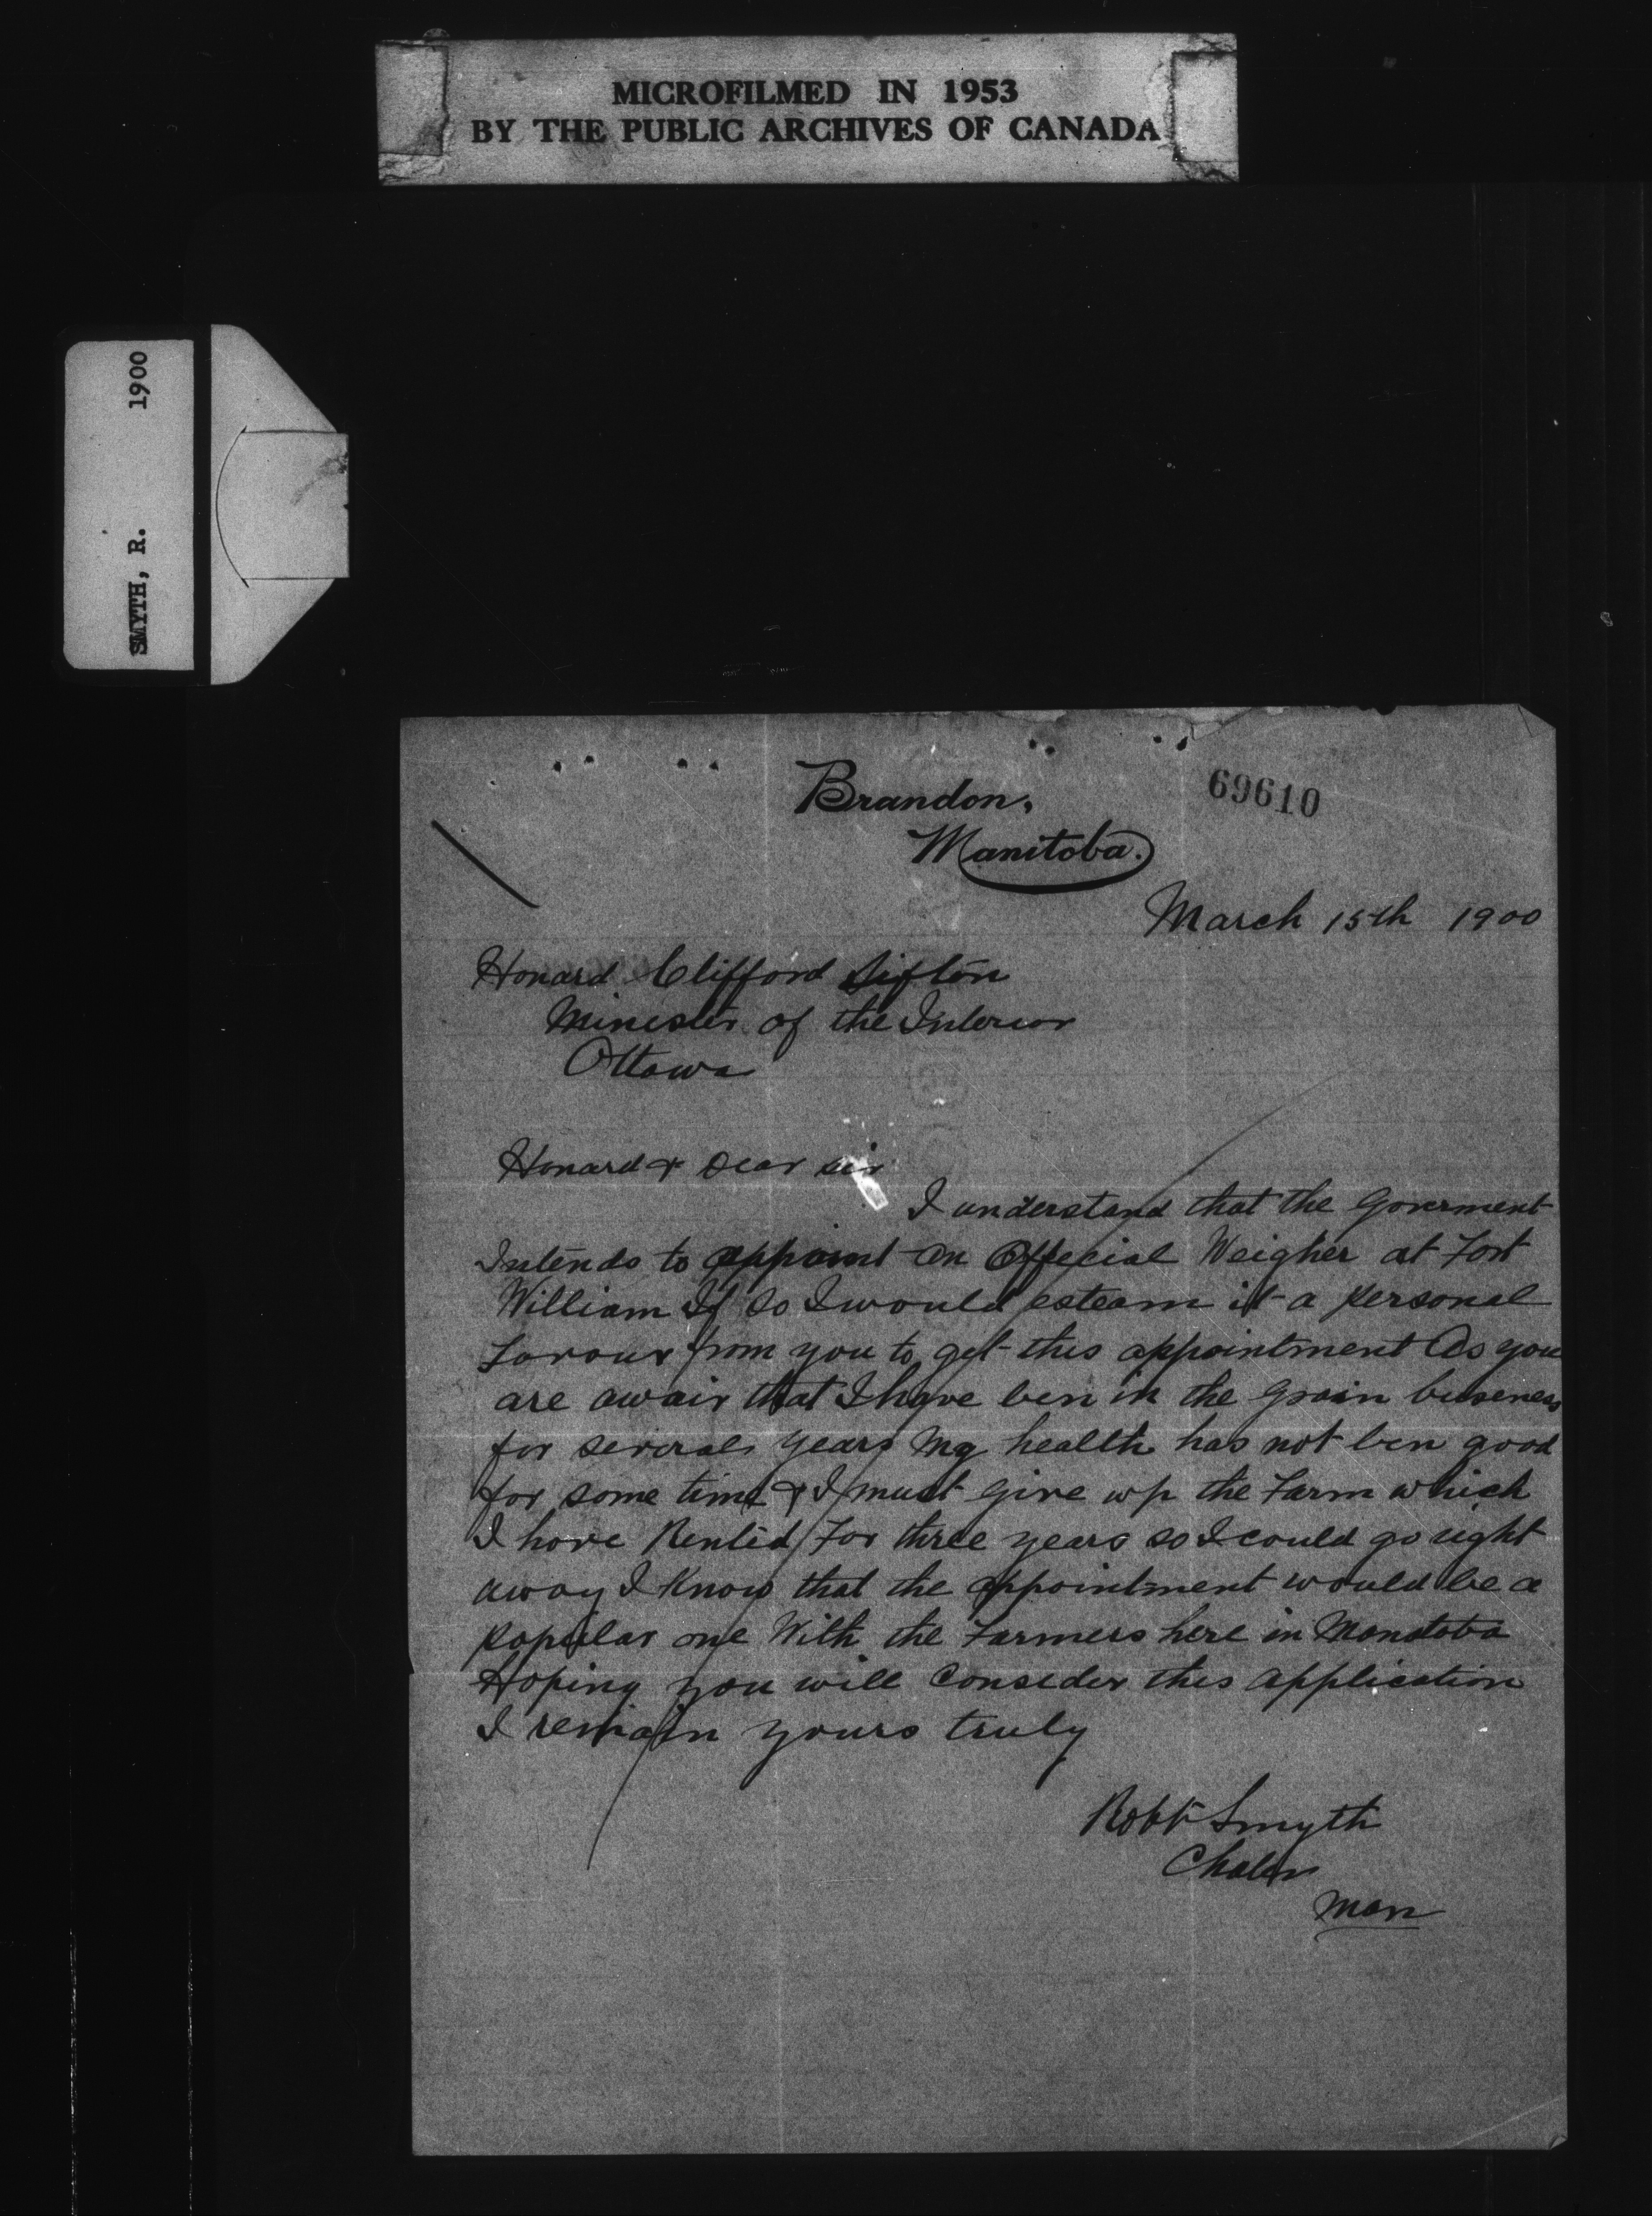 MICROFILMED IN 1953
BY THE PUBLIC ARCHIVES OF CANADA
SMYTH, R. 1900
Brandon,
Manitoba.
69610
March 15th 1900
Honard Clifford Sifton
Minester of the Interior
Ottawa
Honard & Dear sir
I understand that the Goverment
Intends to appoint an Offecial Weigher at Fort
William If so I would esteam it a personal
Favour from you to get this appointment As you
are awair that I have ben in the Grain buseness
for severals years My health has not ben good
for some time & I must give up the Farm which
I have Rented For three years so I could go right
away I Know that the appointment would be a
populer one With the Farmers here in Manotoba
Hoping you will Consider this Application
I remain yours truly
Robt Smyth
Chater
Man